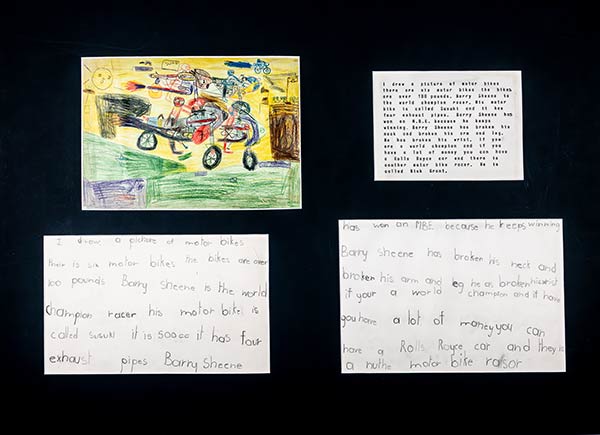 I drew a picture of motor bikes
there are six motor bikes the bikes
are over 100 pounds. Barry Sheene is
the world champion racer. His motor
bike is called Suzuki and it has
four exhaust pipes. Barry Sheene has
won an M.B.E. because he keeps
winning. Barry Sheene has broken his
neck and broken his arm and leg.
He has broken his wrist. if you
are a world champion and if you
have a lot of money you can have
a Rolls Royce car and there is
another motor bike racer. He is
called Mick Grant.
I drew a picture of motor bikes
ther is six motor bikes the bikes are over
100 pounds Barry Sheene is the world
champion racer his motor bike is
called susuki it is 500cc it has four
exhaust pipes Barry Sheene
has won an MBE because he keeps winning
Barry Sheene has broken his neck and
broken his arm and leg he as broken his wrist
if your a world champion and if have
you have a lot of money you can
have a Rolls Royce car and they is
a nuthe motor bike raisor